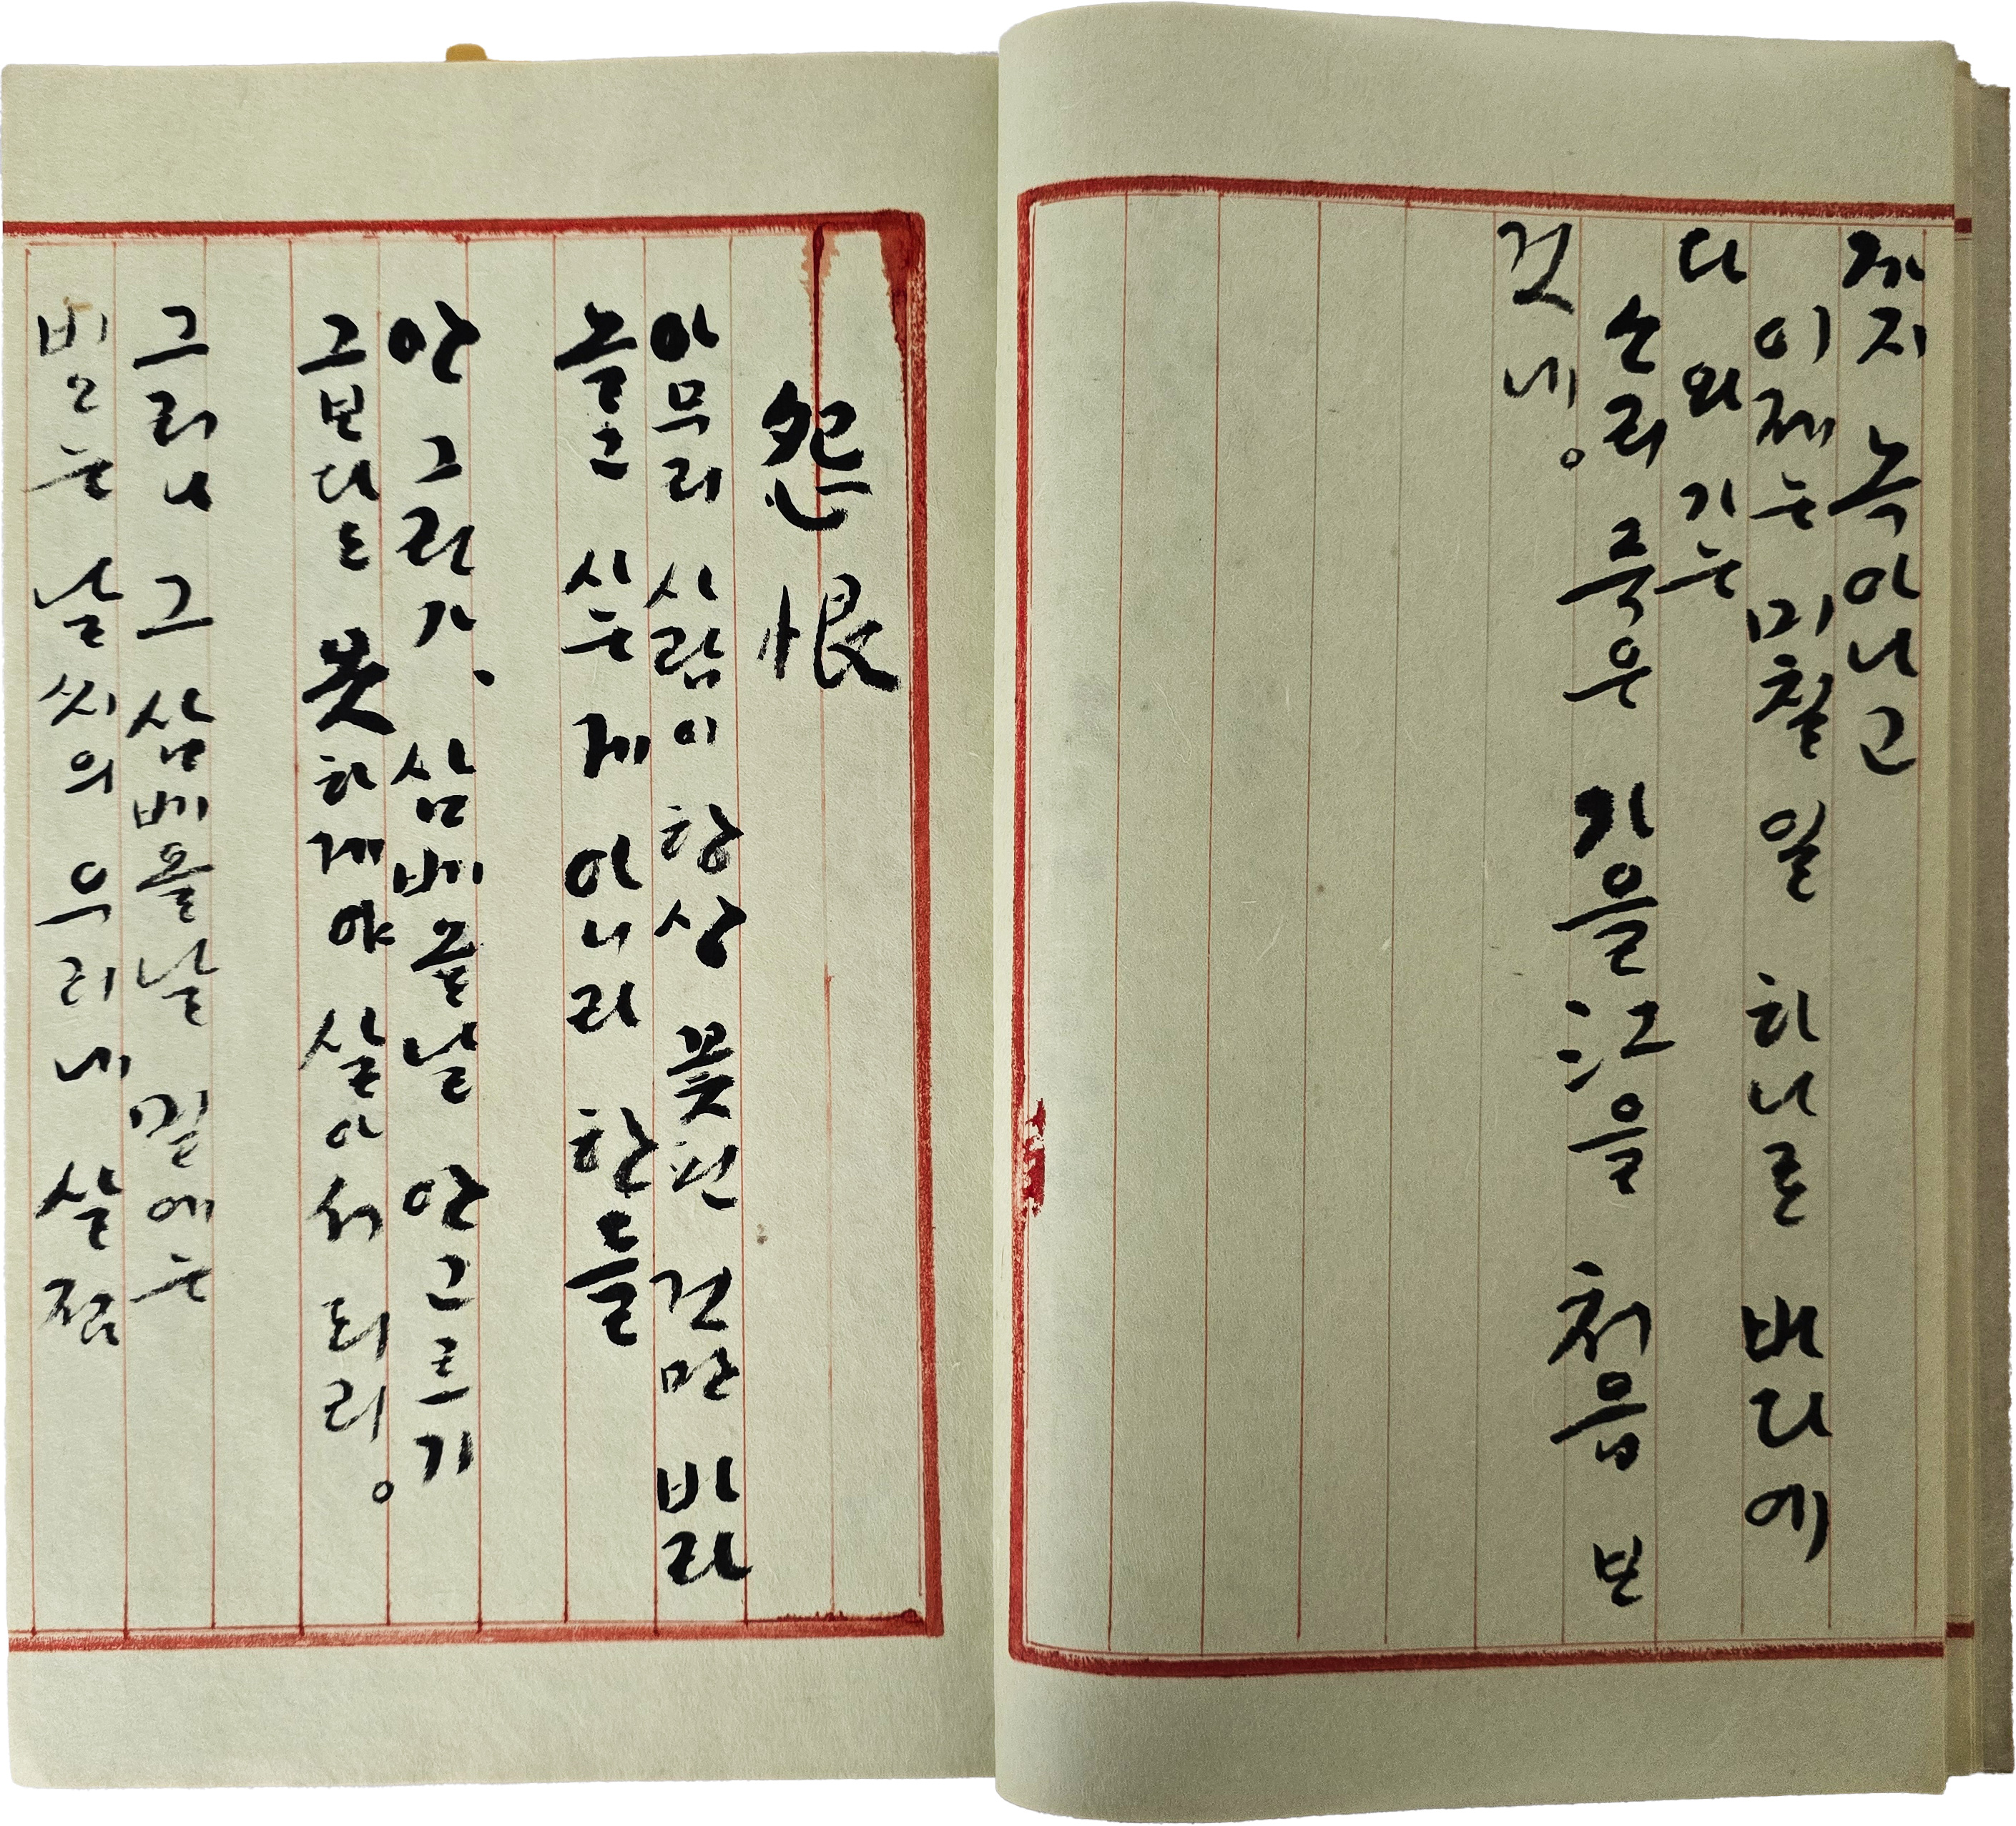 까지 녹아나고
이제는 미칠 일 하나로 바다에
다 와 가는
소리 죽은 가을江을 처음 보
것네。
怨恨
아무리 사람이 항상 꽃핀 것만 바라
놀고 싶은 게 아니라 한들
안 그런가、 삼베올날 안고르기
그보다도 못하게야 살아서 되리。
그러나 그 삼베올날 밑에는
비오는 날씨의 우리네 살점